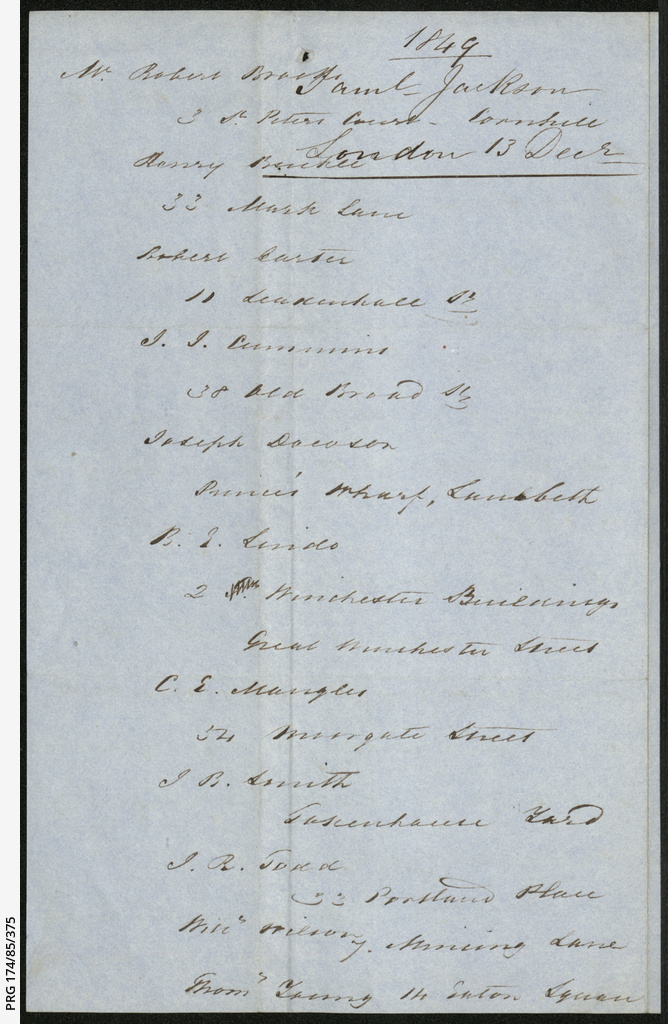 1849
Mr. Robert Brooks
Saml Jackson
3 St Peters Court - Cornhill
London 13 Decr
Henry
33 Mark Lane
Robert Carter
11 Leadenhall St
J. J. Cummins
38 Old Broad St
Joseph Dowson
Prince's Wharf, Lambeth
B. E. Lindo
2 Winchester Buildings
Great Winchester Street
C. E. Mangles
54 Moorgate Street
J B. Smith
Tokenhouse Yard
J. R. Todd
33 Portland Place
Willm Wilson 7. Mincing Lane
Thoms Young 14 Eaton Square
PRG 174/85/375